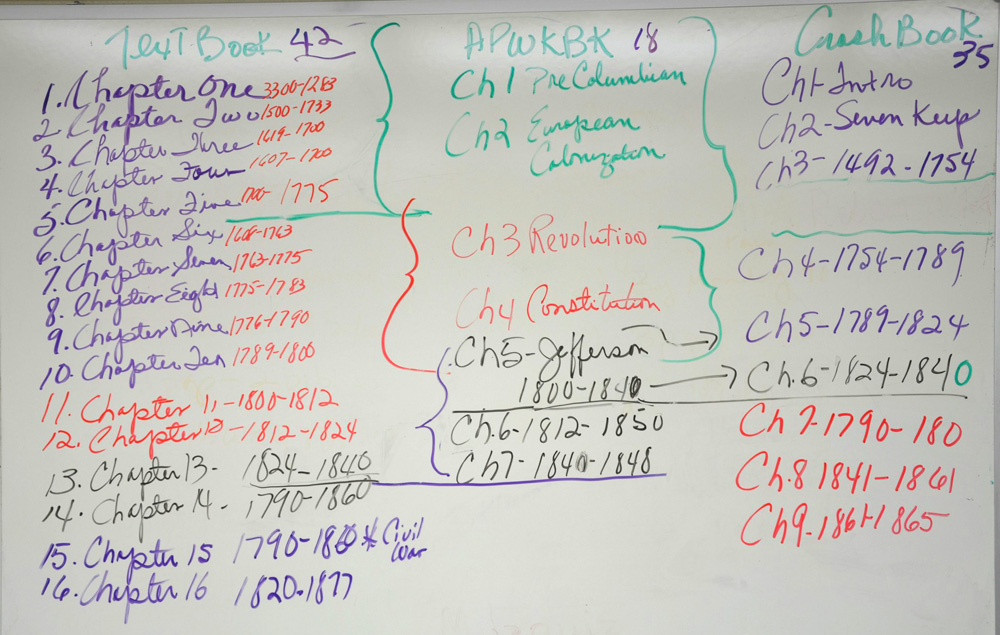 TextBook 42
1. Chapter One 3300-1283
2. Chapter Two 1500-1733
3. Chapter Three 1619-1700
4. Chapter Four 1607-1700
5. Chapter Five 1700-1775
6. Chapter Six 1608-1763
7. Chapter Seven 1763-1775
8. Chapter Eight 1775-1783
9. Chapter Nine 1776-1790
10. Chapter Ten 1789-1800
11. Chapter 11-1800-1812
12. Chapter 12-1812-1824
13. Chapter 13- 1824-1840
14. Chapter 14- 1790-1860
15. Chapter 15 1790-1860 * Civil War
16. Chapter 16 1820-1877
APWKBK 18
Ch1 PreColumbian
Ch2 European
Colonization
Ch3 Revolution
Ch4 Constitution
Ch5-Jefferson
1800-1840
Ch.6-1812-1850
Ch7-1840-1848
Crash Book
35
Ch1-Intro
Ch2-Seven Keys
Ch3-1492-1754
Ch4-1754-1789
Ch5-1789-1824
Ch.6-1824-1840
Ch 7-1790-180
Ch.8 1841-1861
Ch9-1861-1865